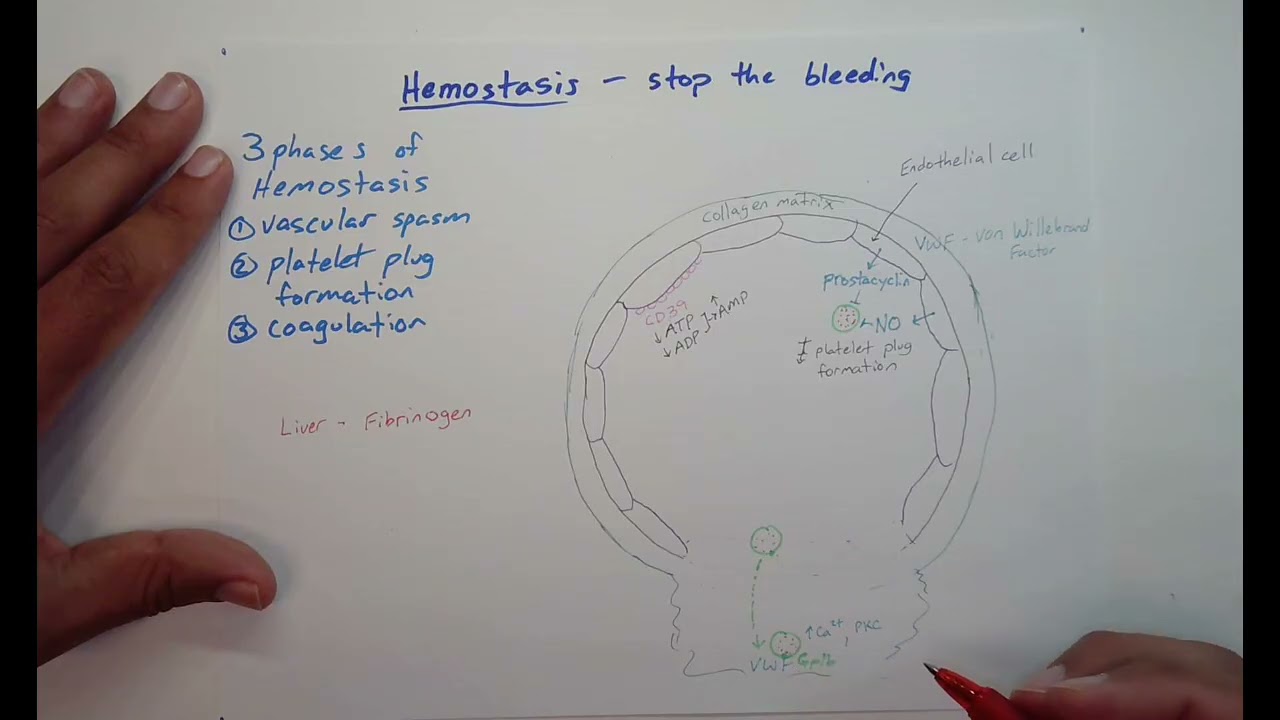 Hemostasis - stop the bleeding
3 phases of
Hemostasis
① vascular spasm
② platelet plug
formation
③ coagulation
Liver - Fibrinogen
Endothelial cell
collagen matrix
VWF - von Willebrand
Factor
prostacyclin
NO
platelet plug
formation
CD39
↓ATP
↓ADP
↑AMP
↑Ca²⁺, PKC
VWF GpIb